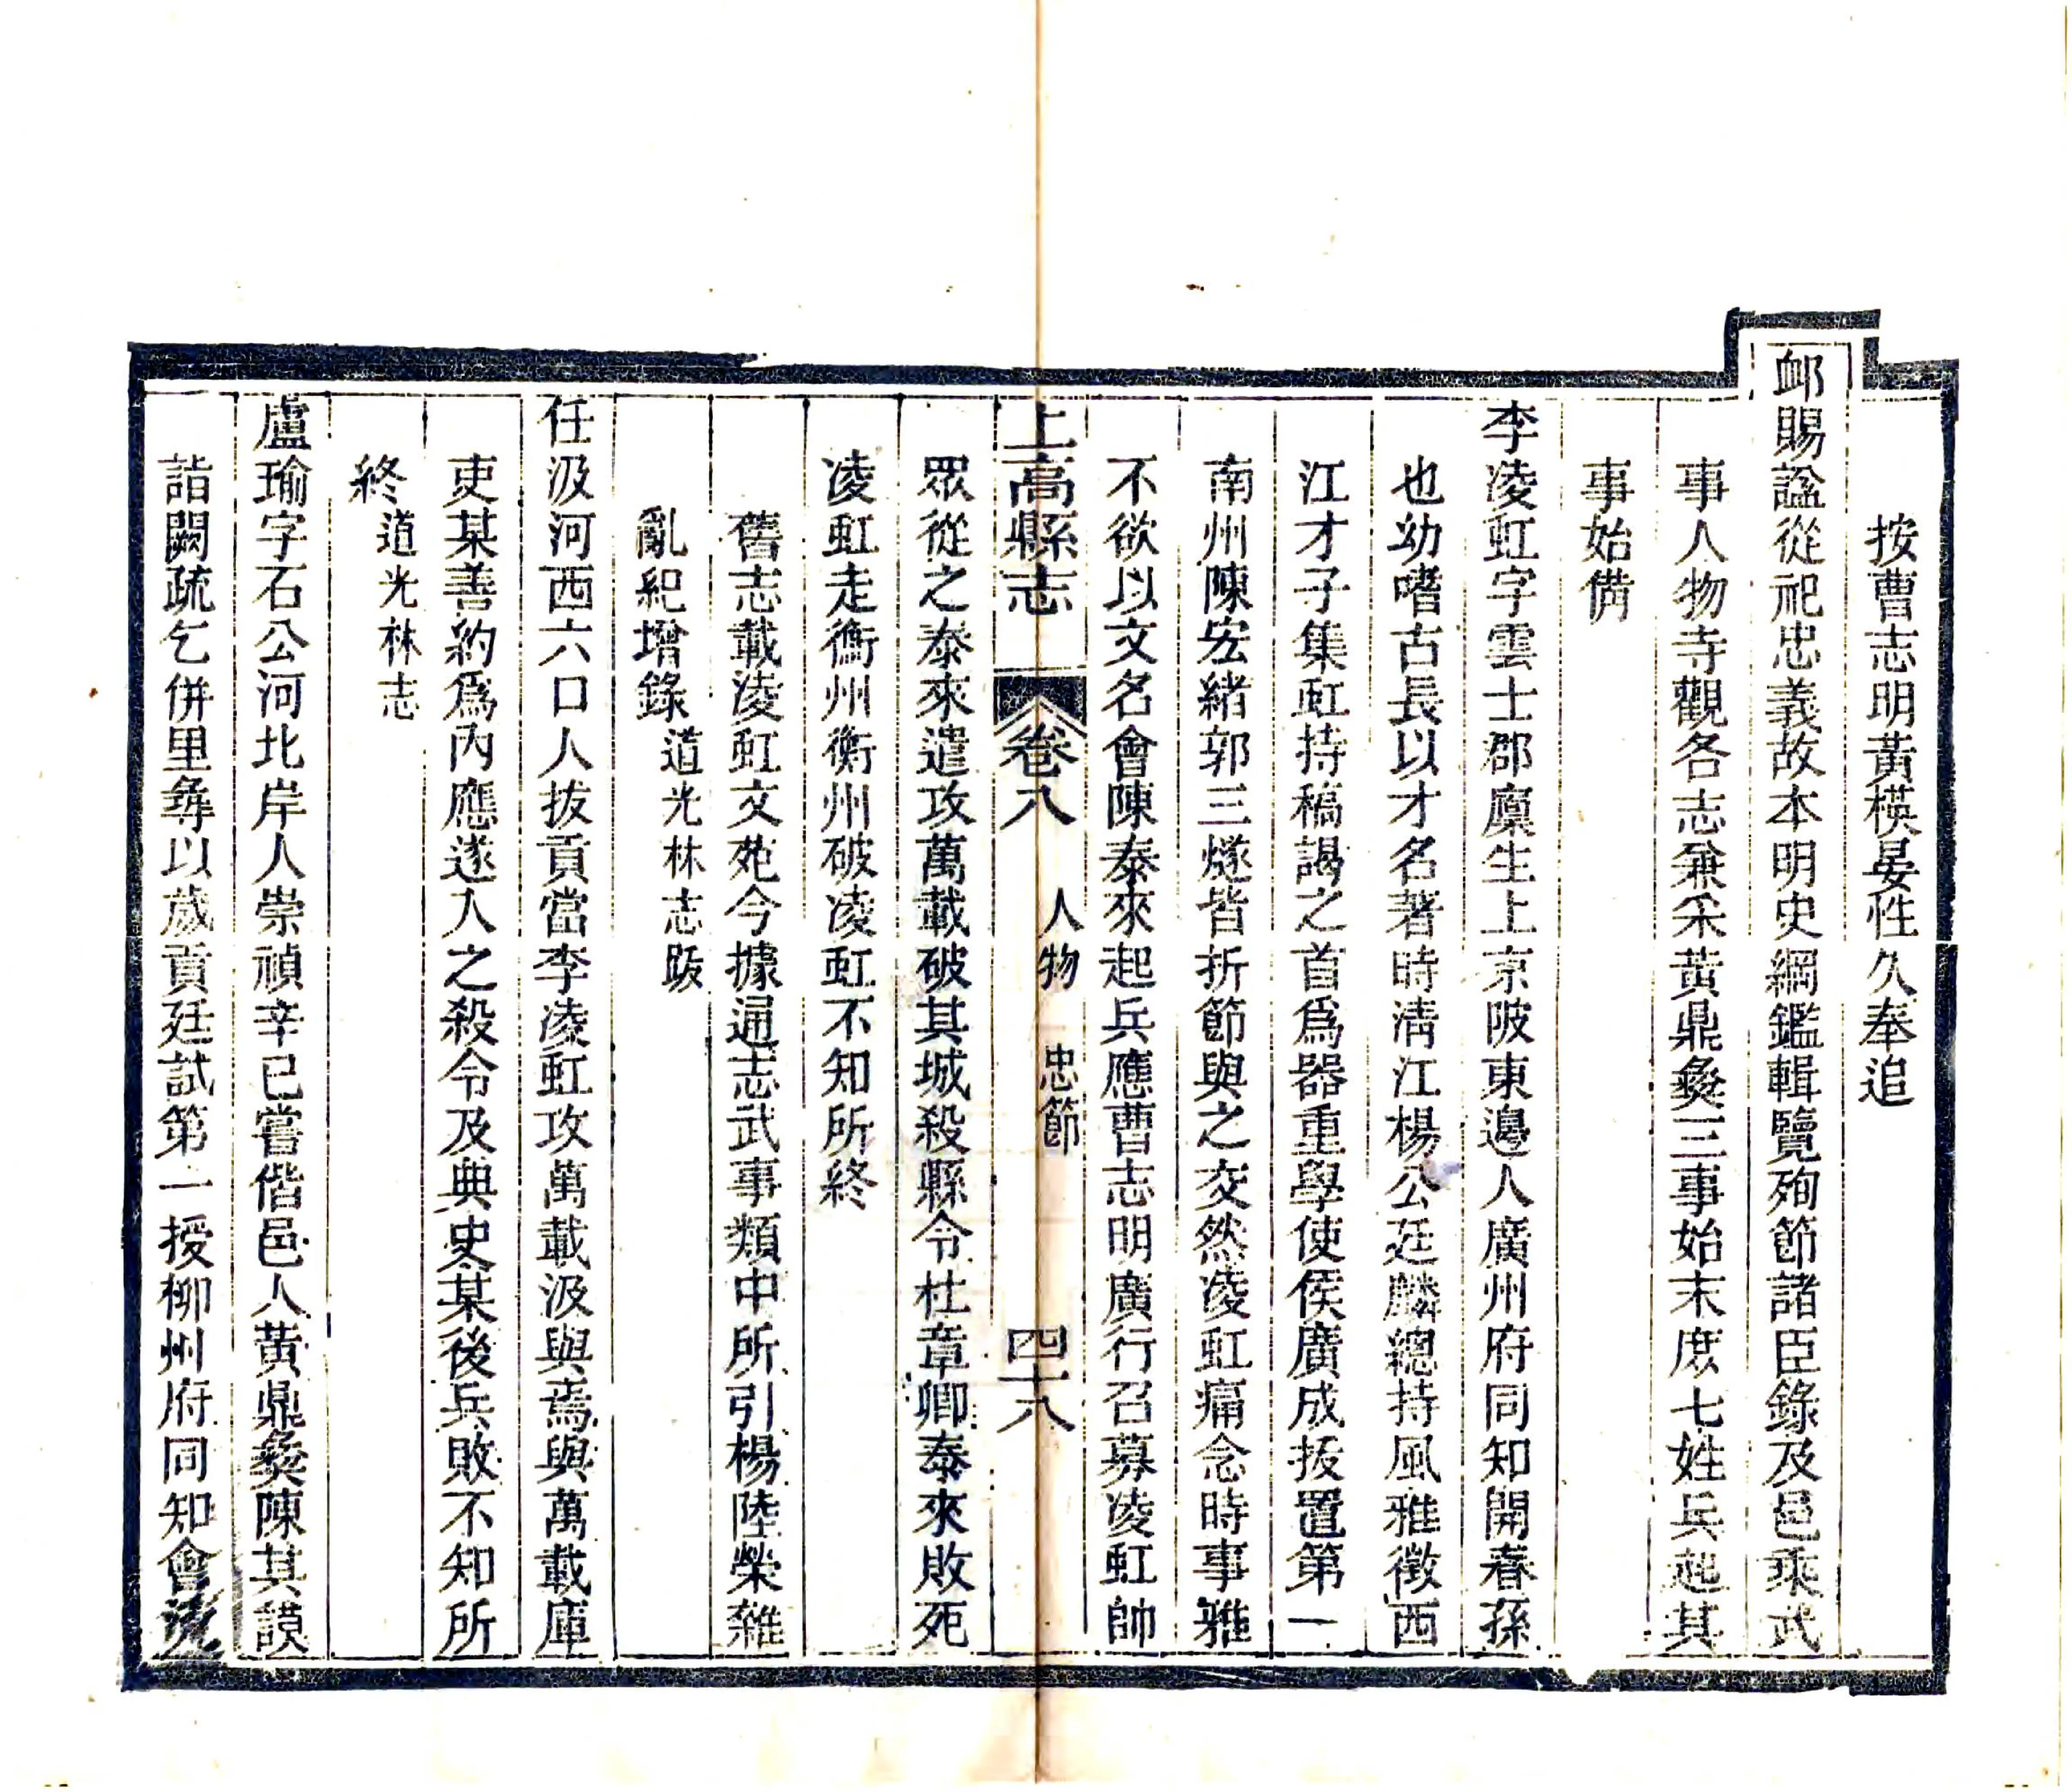 按曹志明黃模晏性久奉追
卹賜諡從祀忠義故本明史綱鑑輯覽殉節諸臣錄及邑乘武
事人物寺觀各志兼采黃鼎彝三事始末庶七姓兵起其
事始備
李凌虹字雲士郡廩生上京陂東邊人廣州府同知開春孫
也幼嗜古長以才名著時清江楊公廷麟總持風雅徵西
江才子集虹持稿謁之首爲器重學使侯廣成拔置第一
南州陳宏緒郭三燧皆折節與之交然凌虹痛念時事雅
不欲以文名會陳泰來起兵應曹志明廣行召募凌虹帥
上高縣志 卷八 人物 忠節 四十八
眾從之泰來遣攻萬載破其城殺縣令杜章卿泰來敗死
凌虹走衡州衡州破凌虹不知所終
舊志載凌虹文苑今據通志武事類中所引楊陸榮雜
亂紀增錄道光林志跋
任汲河西六口人拔貢當李凌虹攻萬載汲與焉與萬載庫
吏某善約爲內應遂入之殺令及典史某後兵敗不知所
終道光林志
盧瑜字石公河北岸人崇禎辛已嘗偕邑人黃鼎彝陳其謨
詣闕疏乞併里彝以歲貢廷試第一授柳州府同知會流